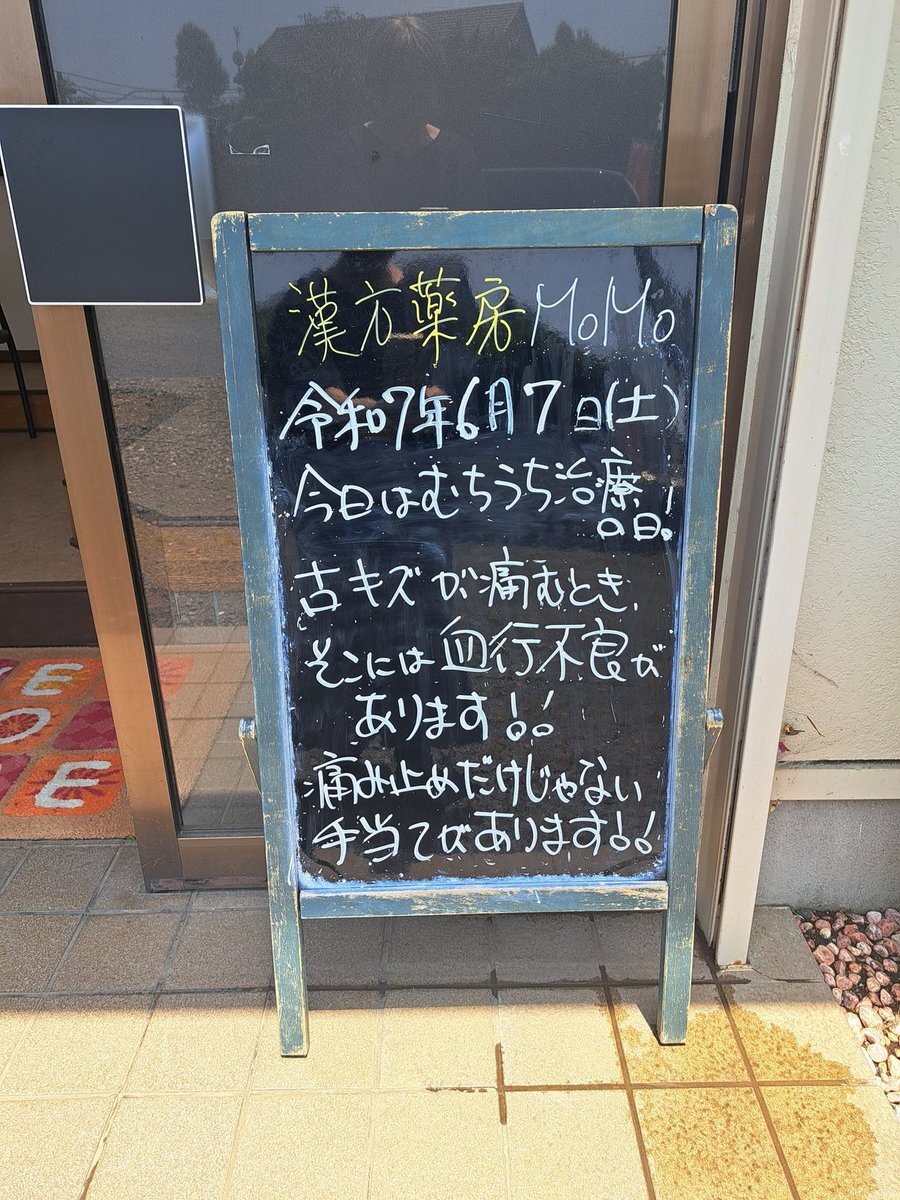 漢方薬房MoMo
令和7年6月7日(土)
今日はむちうち治療
の日!
古キズが痛むとき、
そこには血行不良が
あります!!
痛み止めだけじゃない
手当てがあります!!